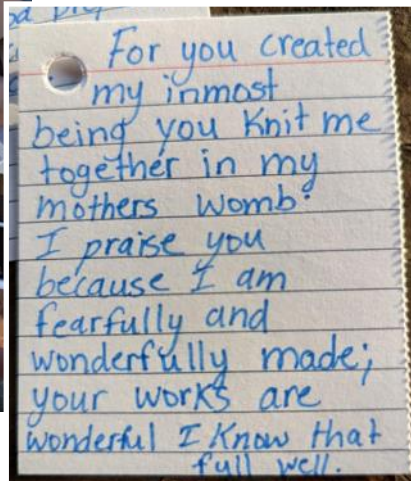 For you created
my inmost
being you Knit me
together in my
mothers womb.
I praise you
because I am
fearfully and
wonderfully made;
your works are
wonderful I Know that
full well.